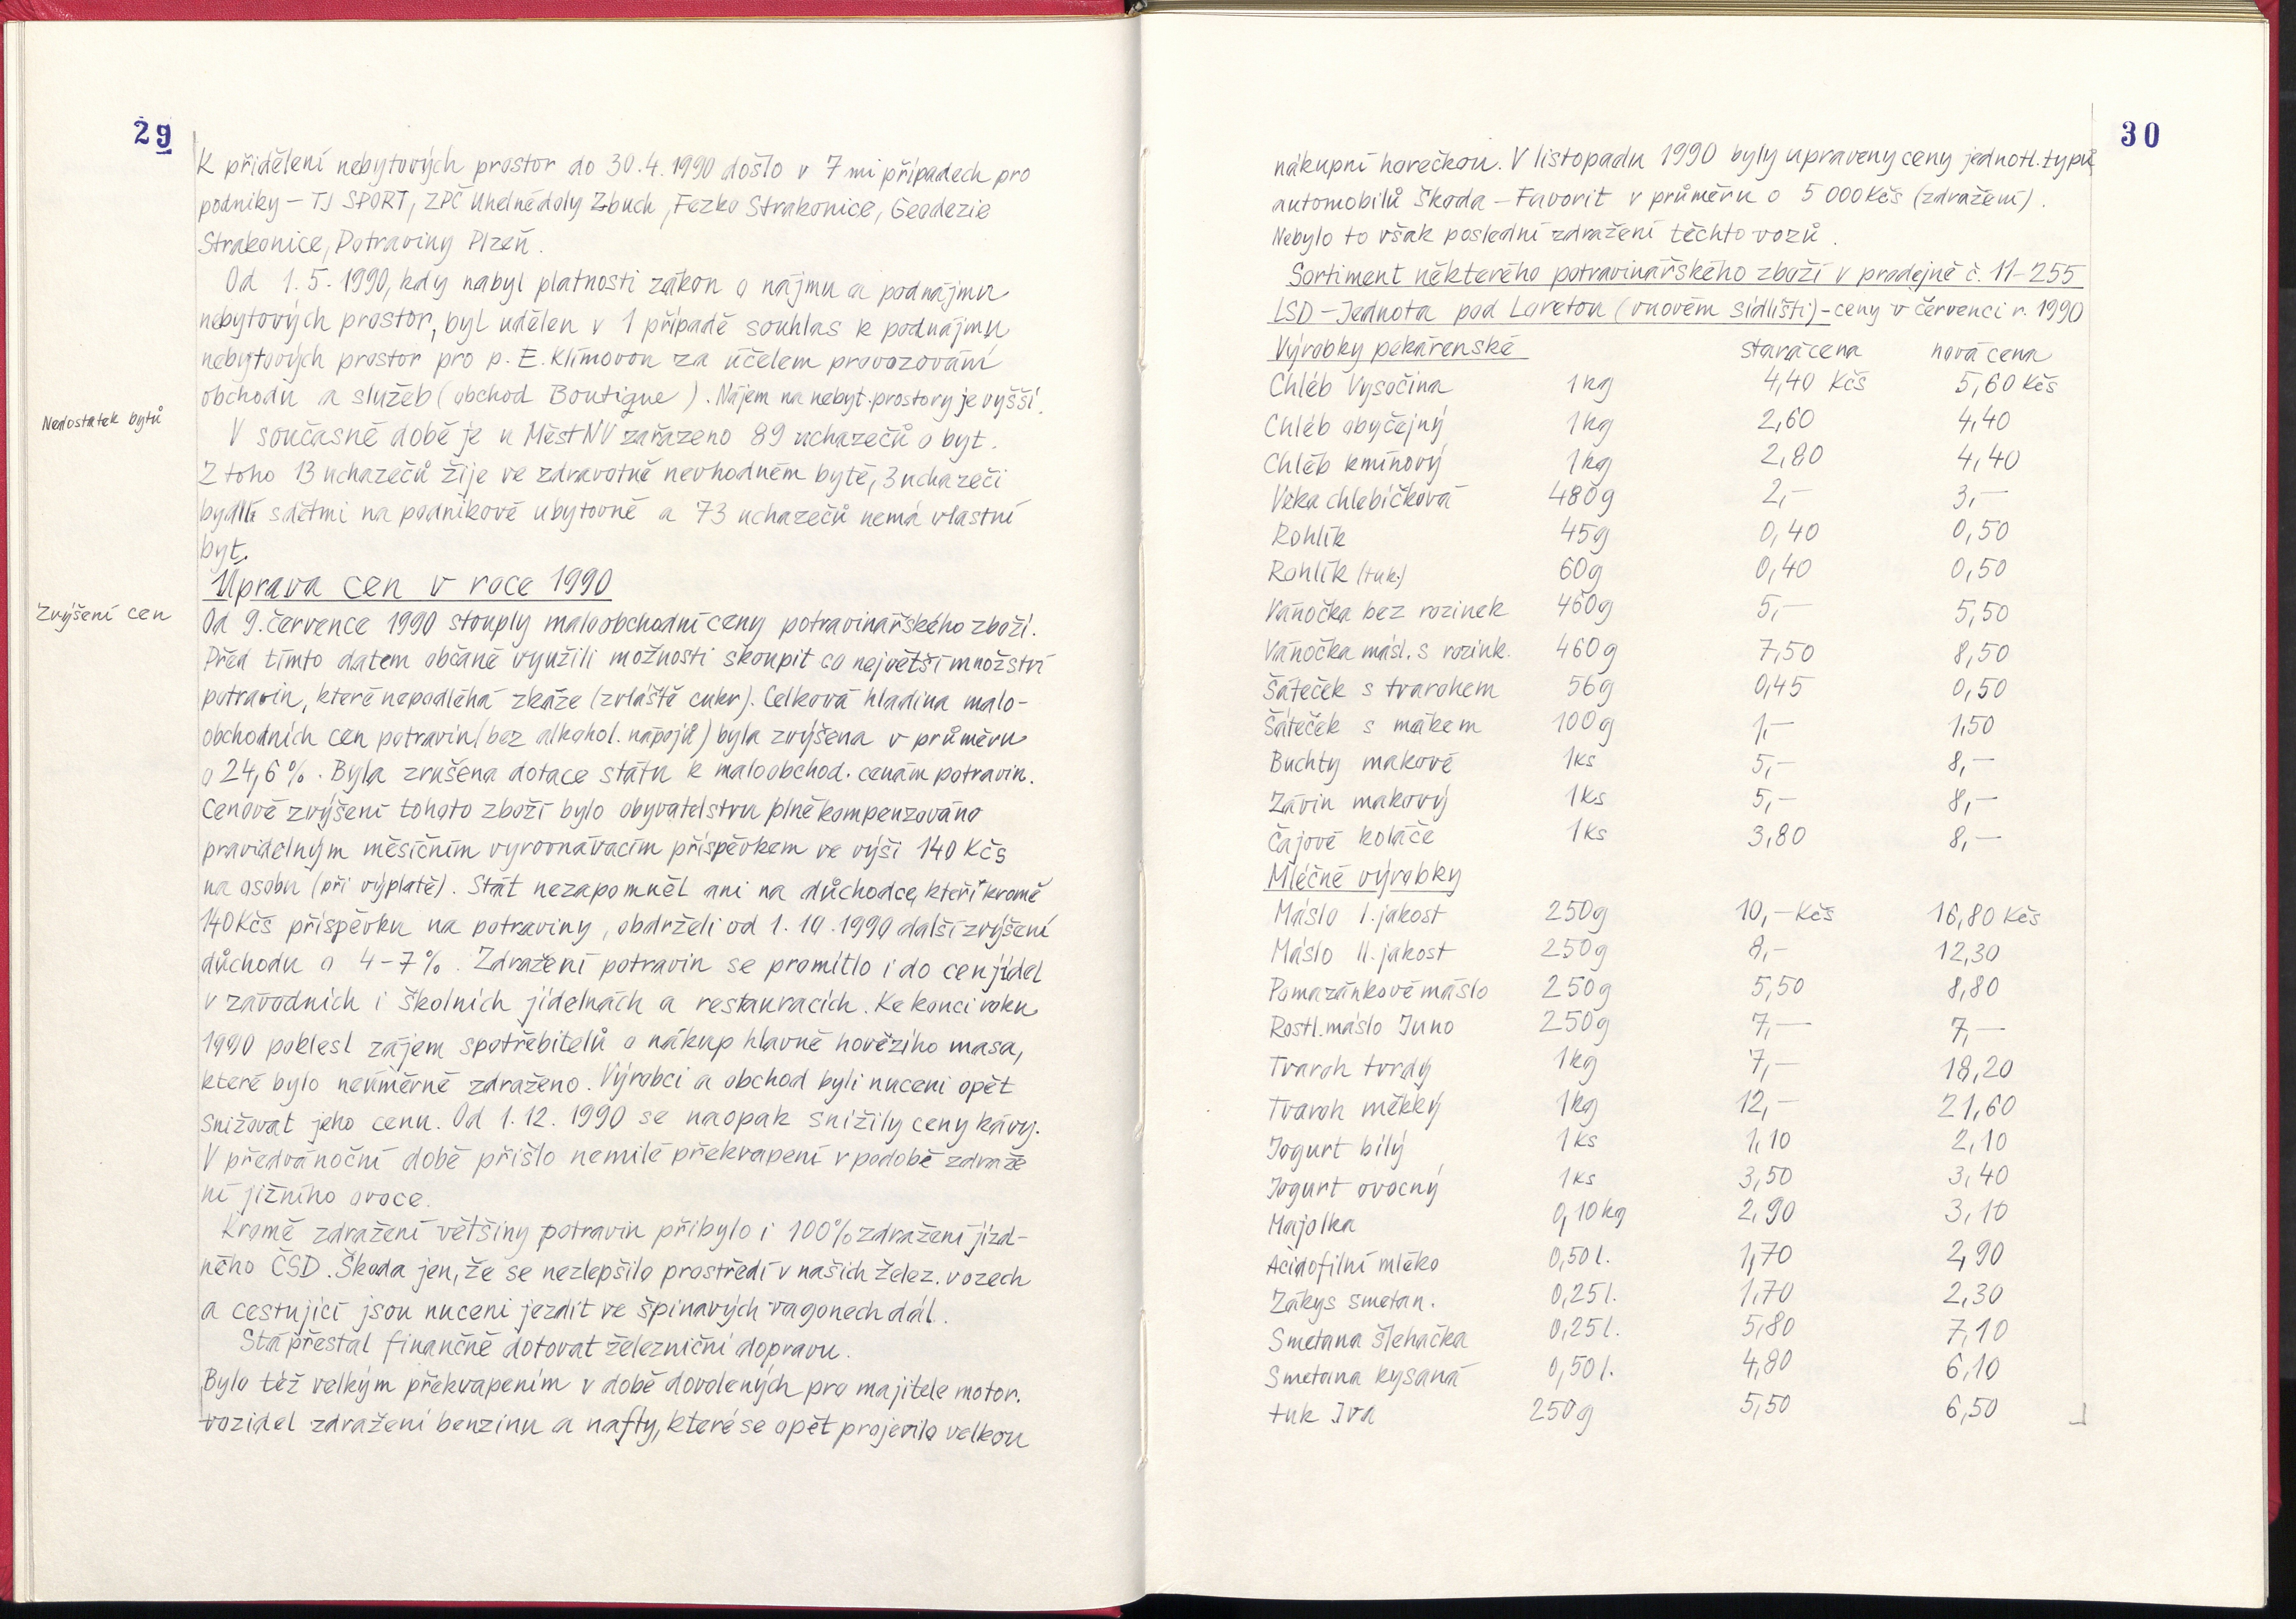 29
K přidělení nebytových prostor do 30.4.1990 došlo v 7mi případech pro
podniky – TJ SPORT, ZPČ Uhelné doly Zbuch, Fezko Strakonice, Geodezie
Strakonice, Potraviny Plzeň.
Od 1.5.1990, kdy nabyl platnosti zákon o nájmu a podnájmu
nebytových prostor, byl udělen v 1 případě souhlas k podnájmu
nebytových prostor pro p. E. Klímovou za účelem provozování
obchodu a služeb (obchod Boutique). Nájem na nebyt. prostory je vyšší.
Nedostatek bytů
V současné době je u MěstNV zařazeno 89 uchazečů o byt.
Z toho 13 uchazečů žije ve zdravotně nevhodném bytě, 3 uchazeči
bydlí s dětmi na podnikové ubytovně a 73 uchazečů nemá vlastní
byt.
Úprava cen v roce 1990
Zvýšení cen
Od 9. července 1990 stouply maloobchodní ceny potravinářského zboží.
Před tímto datem občané využili možnosti skoupit co největší množství
potravin, které nepodléhá zkáze (zvláště cukr). Celková hladina malo-
obchodních cen potravin (bez alkohol. nápojů) byla zvýšena v průměru
o 24,6%. Byla zrušena dotace státu k maloobchod. cenám potravin.
Cenové zvýšení tohoto zboží bylo obyvatelstvu plně kompenzováno
pravidelným měsíčním vyrovnávacím příspěvkem ve výši 140 Kčs
na osobu (při výplatě). Stát nezapomněl ani na důchodce, kteří kromě
140 Kčs příspěvku na potraviny, obdrželi od 1.10.1990 další zvýšení
důchodu o 4-7%. Zdražení potravin se promítlo i do cen jídel
v závodních i školních jídelnách a restauracích. Ke konci roku
1990 poklesl zájem spotřebitelů o nákup hlavně hovězího masa,
které bylo neúměrně zdraženo. Výrobci a obchod byli nuceni opět
snižovat jeho cenu. Od 1.12.1990 se naopak snížily ceny kávy.
V předvánoční době přišlo nemilé překvapení v podobě zdraže
ní jižního ovoce.
Kromě zdražení většiny potravin přibylo i 100% zdražení jízd-
ného ČSD. Škoda jen, že se nezlepšilo prostředí v našich želez. vozech
a cestující jsou nuceni jezdit ve špinavých vagonech dál.
Stá přestal finančně dotovat železniční dopravu.
Bylo též velkým překvapením v době dovolených pro majitele motor.
vozidel zdražení benzinu a nafty, které se opět projevilo velkou
30
nákupní horečkou. V listopadu 1990 byly upraveny ceny jednotl. typů
automobilů Škoda – Favorit v průměru o 5 000 Kčs (zdražení).
Nebylo to však poslední zdražení těchto vozů.
Sortiment některého potravinářského zboží v prodejně č. 11-255
LSD – Jednota pod Loretou (v novém sídlišti) – ceny v červenci r. 1990
Výrobky pekárenské stará cena nová cena
Chléb Vysočina 1kg 4,40 Kčs 5,60 Kčs
Chléb obyčejný 1kg 2,60 4,40
Chléb kmínový 1kg 2,80 4,40
Veka chlebíčková 480g 2,- 3,-
Rohlík 45g 0,40 0,50
Rohlík (tuk.) 60g 0,40 0,50
Vánočka bez rozinek 460g 5,- 5,50
Vánočka másl. s rozink. 460g 7,50 8,50
Šáteček s tvarohem 56g 0,45 0,50
Šáteček s mákem 100g 1,- 1,50
Buchty makové 1ks 5,- 8,-
Závin makový 1ks 5,- 8,-
Čajové koláče 1ks 3,80 8,-
Mléčné výrobky
Máslo I. jakost 250g 10,- Kčs 16,80 Kčs
Máslo II. jakost 250g 8,- 12,30
Pomazánkové máslo 250g 5,50 8,80
Rostl. máslo Juno 250g 7,- 7,-
Tvaroh tvrdý 1kg 7,- 18,20
Tvaroh měkký 1kg 12,- 21,60
Jogurt bílý 1ks 1,10 2,10
Jogurt ovocný 1ks 3,50 3,40
Majolka 0,10kg 2,90 3,10
Acidofilní mléko 0,50l. 1,70 2,90
Zákys smetan. 0,25l. 1,70 2,30
Smetana šlehačka 0,25l. 5,80 7,10
Smetana kysaná 0,50l. 4,80 6,10
tuk Iva 250g 5,50 6,50